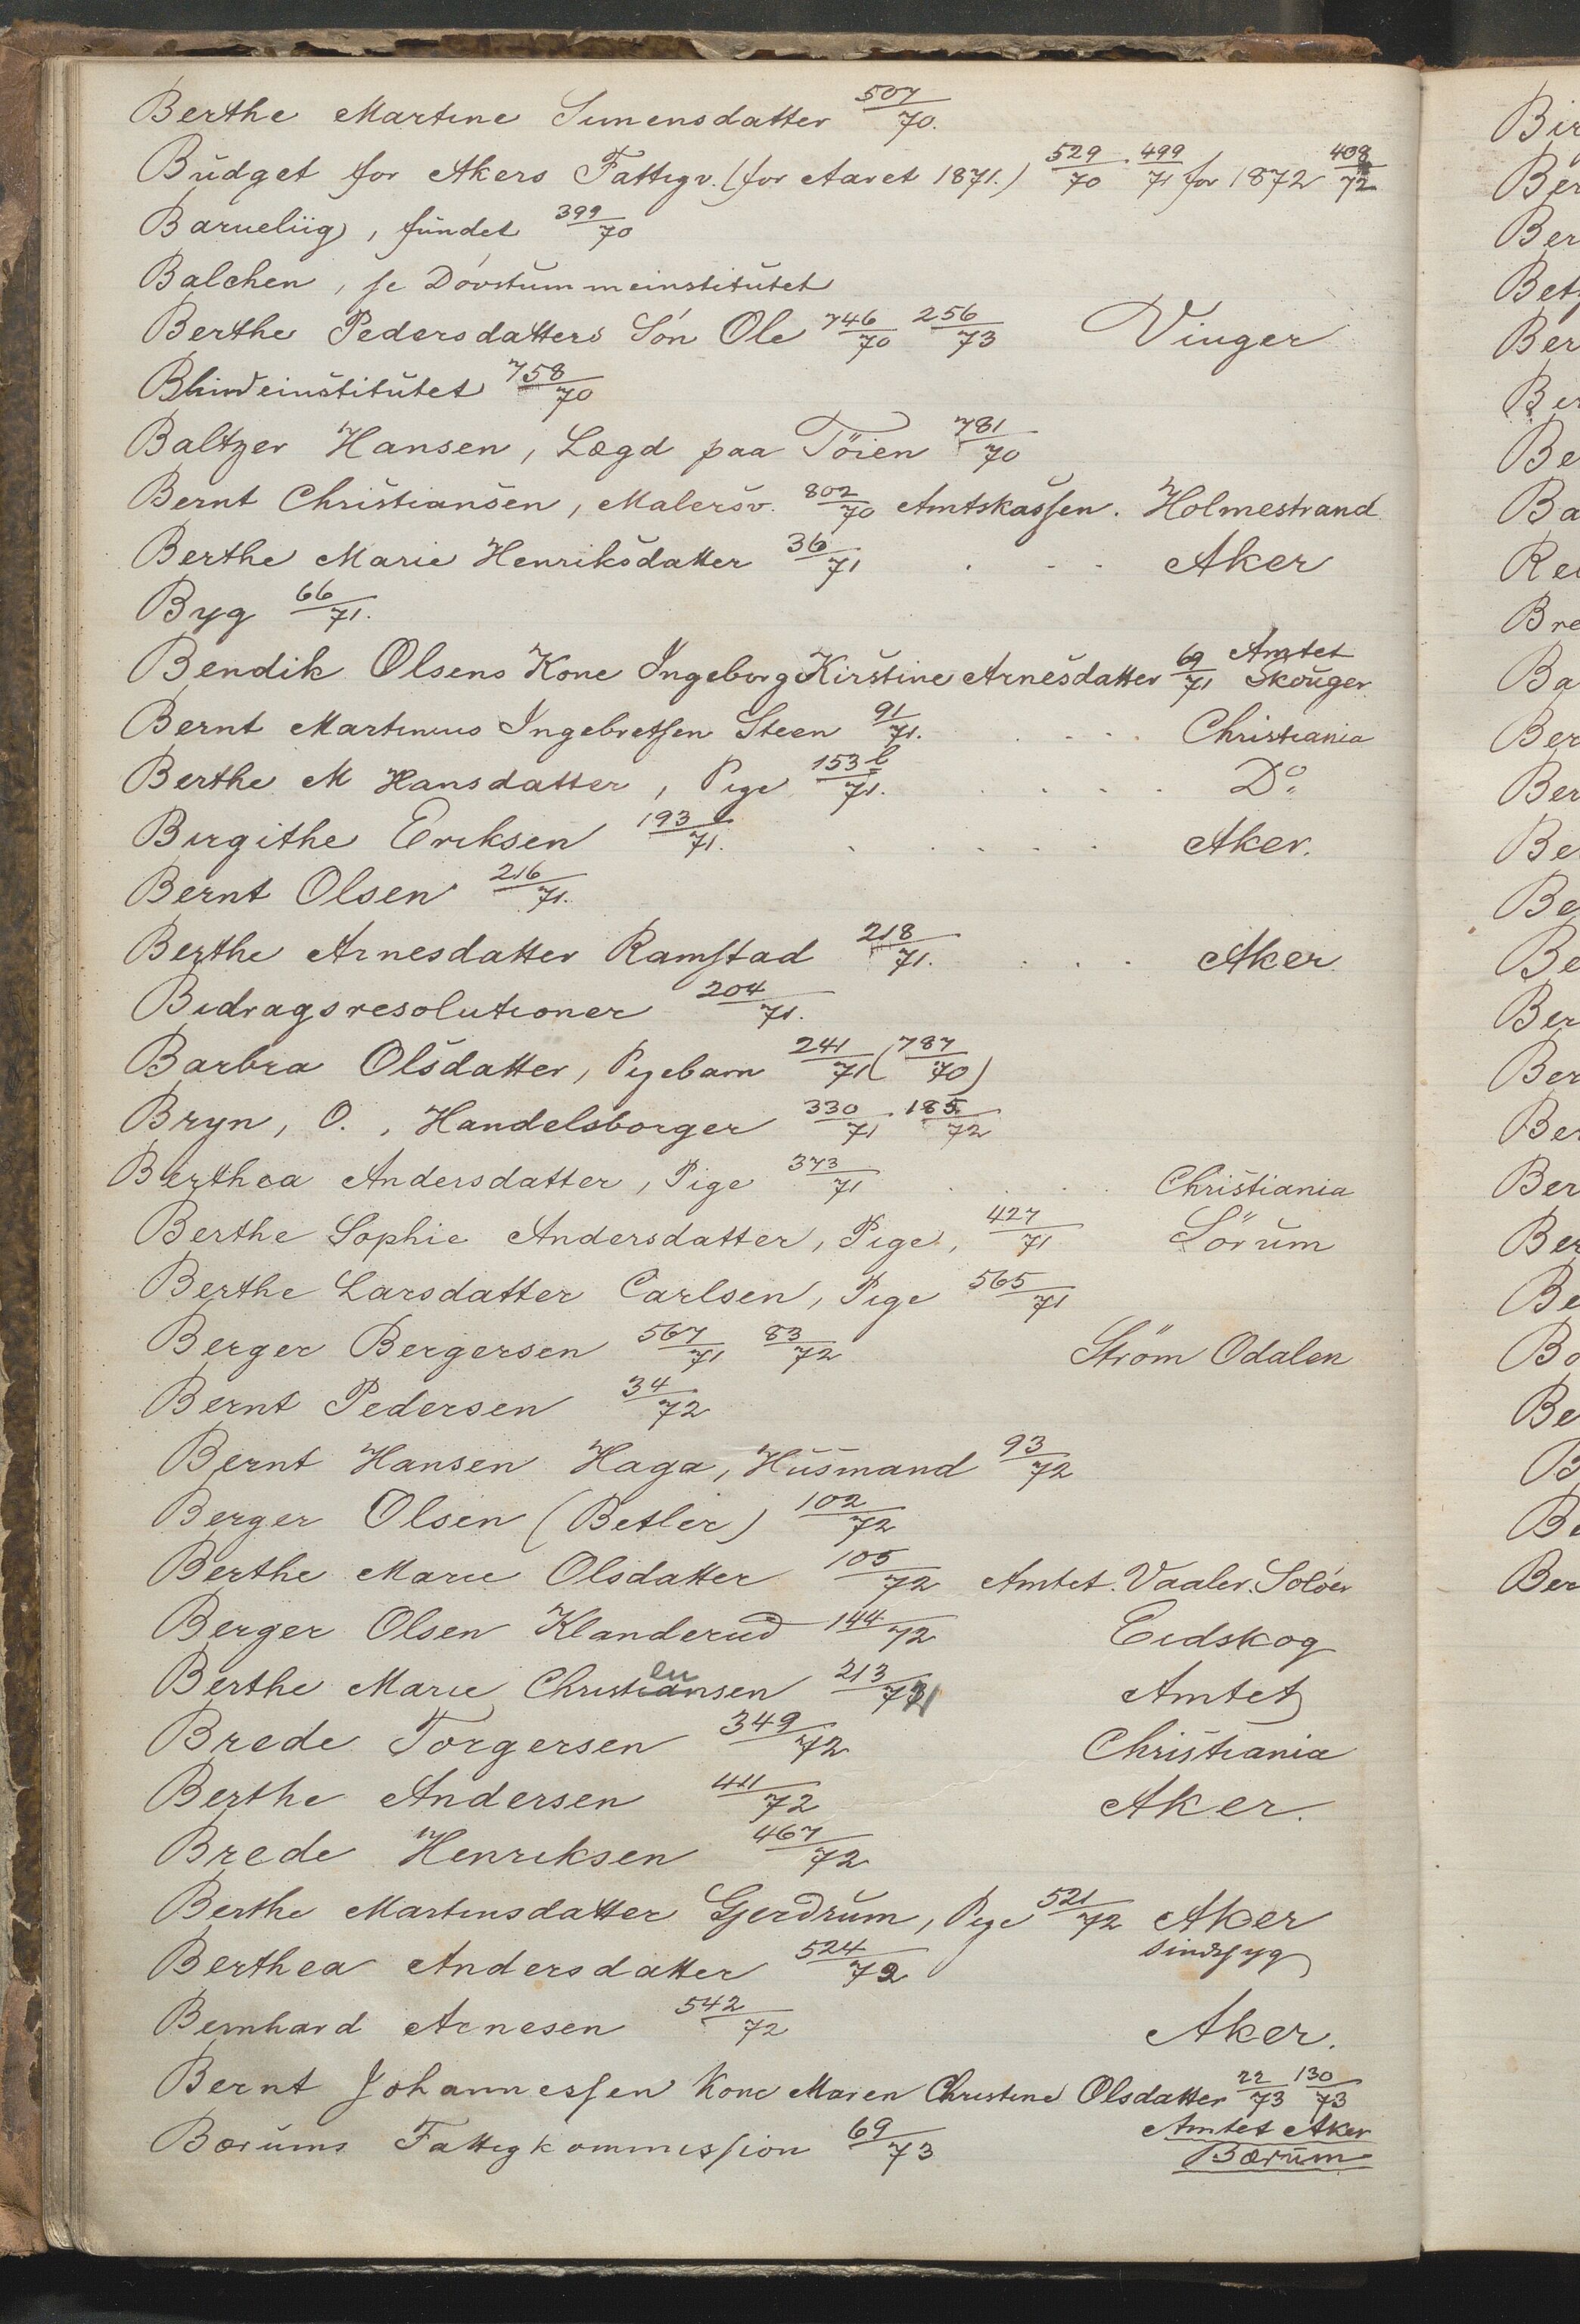 Berthe Martine Simensdatter 507/70.
Budget for Akers Fattigv. (for Aaret 1871.) 529/70 . 499/71 for 1872 408/72
Barneliig, fundet 399/70
Balchen, se Dövstummeinstitutet
Berthe Pedersdatters Sön Ole 746/70 256/73 Vinger
Blindeinstitutet 758/70
Baltzer Hansen, Lægd paa Töien 781/70
Bernt Christiansen, Malersv. 802/70 Amtskassen. Holmestrand
Berthe Marie Henriksdatter 36/71 . - - Aker
Byg 66/71.
Bendik Olsens Kone Ingeborg Kirstine Arnesdatter 69/71 Amtet Skouger
Bernt Martinius Ingebretsen Steen 91/71. . . . . Christiania
Berthe M Hansdatter, Pige 153 b/71. . . . . Do.
Birgithe Eriksen 193/71. . . . . . Aker.
Bernt Olsen 216/71.
Berthe Arnesdatter Ramstad 218/71. . . . Aker
Bidragsresolutioner 204/71.
Barbra Olsdatter, Pigebarn 241/71 (787/70)
Bryn, O., Handelsborger 330/71 . 185/72
Berthea Andersdatter, Pige 373/71 . . . . Christiania
Berthe Sophie Andersdatter, Pige, 427/71 Sörum
Berthe Larsdatter Carlsen, Pige 565/71
Berger Bergersen 567/71 83/72 Ström Odalen
Bernt Pedersen 34/72
Bernt Hansen Haga, Husmand 93/72
Berger Olsen (Betler) 102/72
Berthe Marie Olsdatter 105/72 Amtet. Vaaler. Solöer
Berger Olsen Klanderud 144/72 Eidskog
Berthe Marie Christiansen 213/71 Amtet
Brede Torgersen 349/72 Christiania
Berthe Andersen 411/72 Aker.
Brede Henriksen 467/72
Berthe Martinsdatter Gjerdrum, Pige 521/72 Aker
Berthea Andersdatter 524/72 sindssyg
Bernhard Arnesen 542/72 Aker.
Bernt Johannessen Kone Maren Christine Olsdatter 22/73 130/73
Amtet Aker
Bærums Fattigkommission 69/73 Bærum